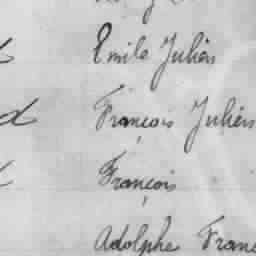 Emile Julien
d François Julien
François
Adolphe Franç